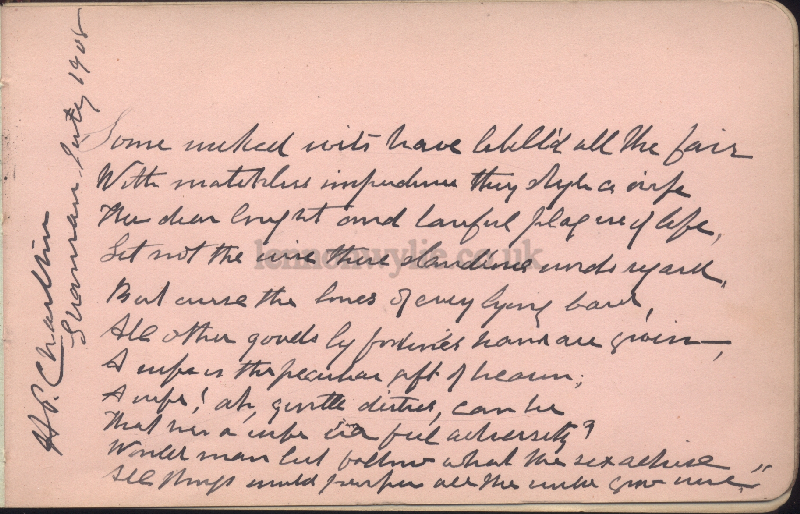 Some wicked wits have libell'd all the fair
With matchless impudence they style a wife
The dear bought and lawful plague of life,
Let not the wise these slanderous words regard,
But curse the bones of every lying bard,
All other goods by fortune's hand are given,
A wife is the peculiar gift of heaven;
A wife! ah, gentle deities, can he
That has a wife e'er feel adversity?
Would man but follow what the sex advise
All things would prosper all the world grow wise."
H.P.
July 1908
lennonwylie.co.uk